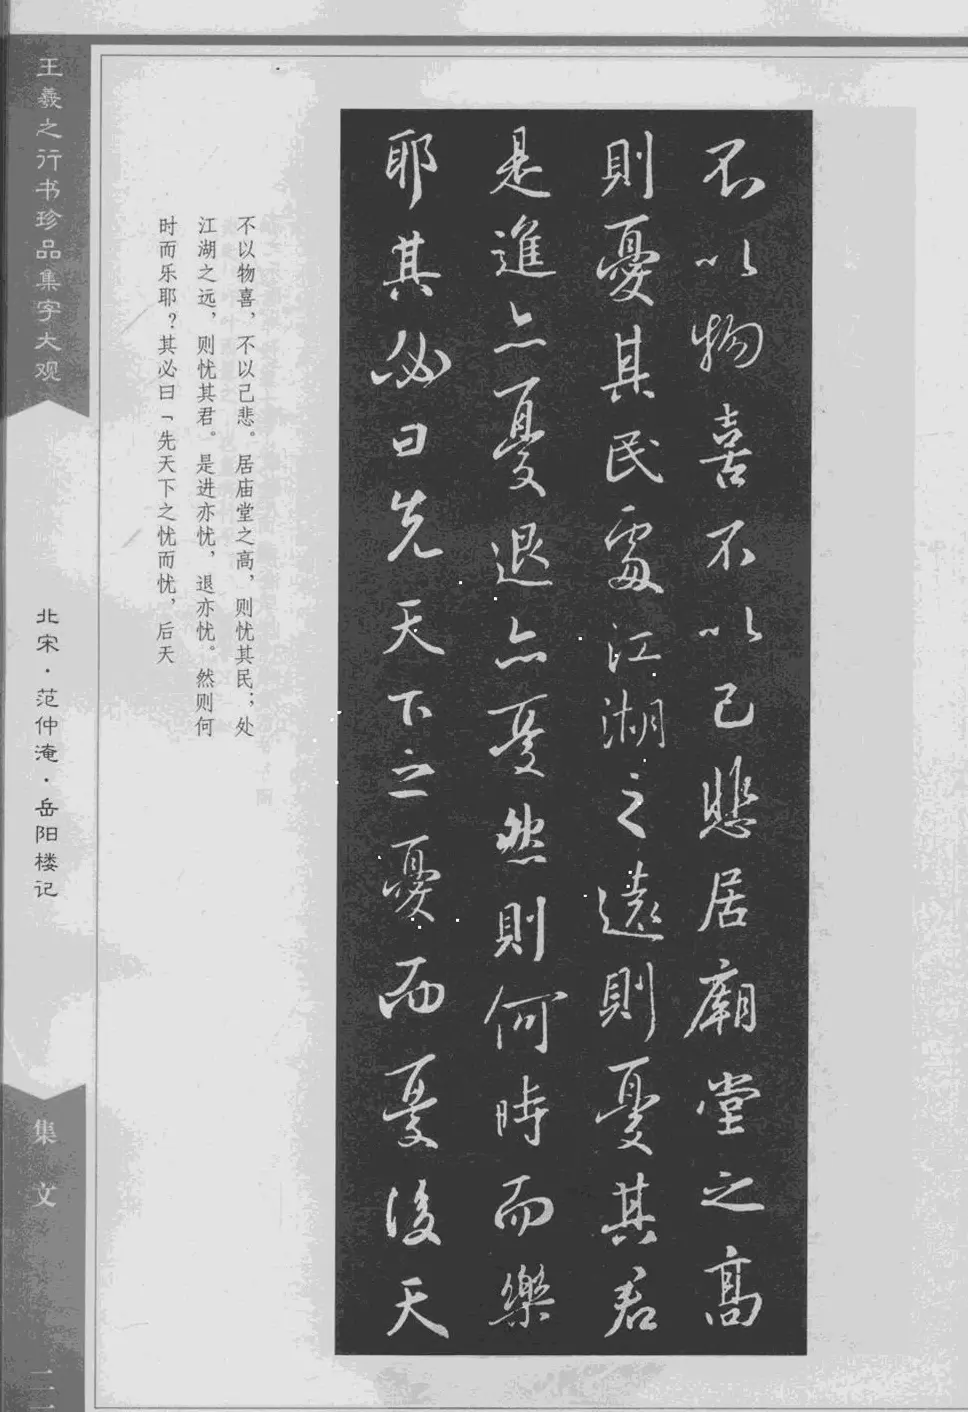 不以物喜不以己悲居廟堂之高
則憂其民處江湖之遠則憂其君
是進亦憂退亦憂然則何時而樂
耶其必曰先天下之憂而憂後天
不以物喜，不以己悲。居庙堂之高，则忧其民；处
江湖之远，则忧其君。是进亦忧，退亦忧。然则何
时而乐耶？其必曰「先天下之忧而忧，后天
王羲之行书珍品集字大观
北宋·范仲淹·岳阳楼记
集文